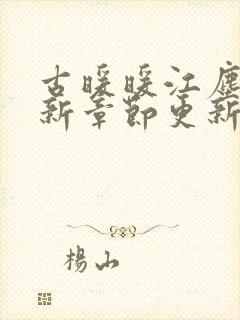 古暖暖江塵
新章節更新
楊山